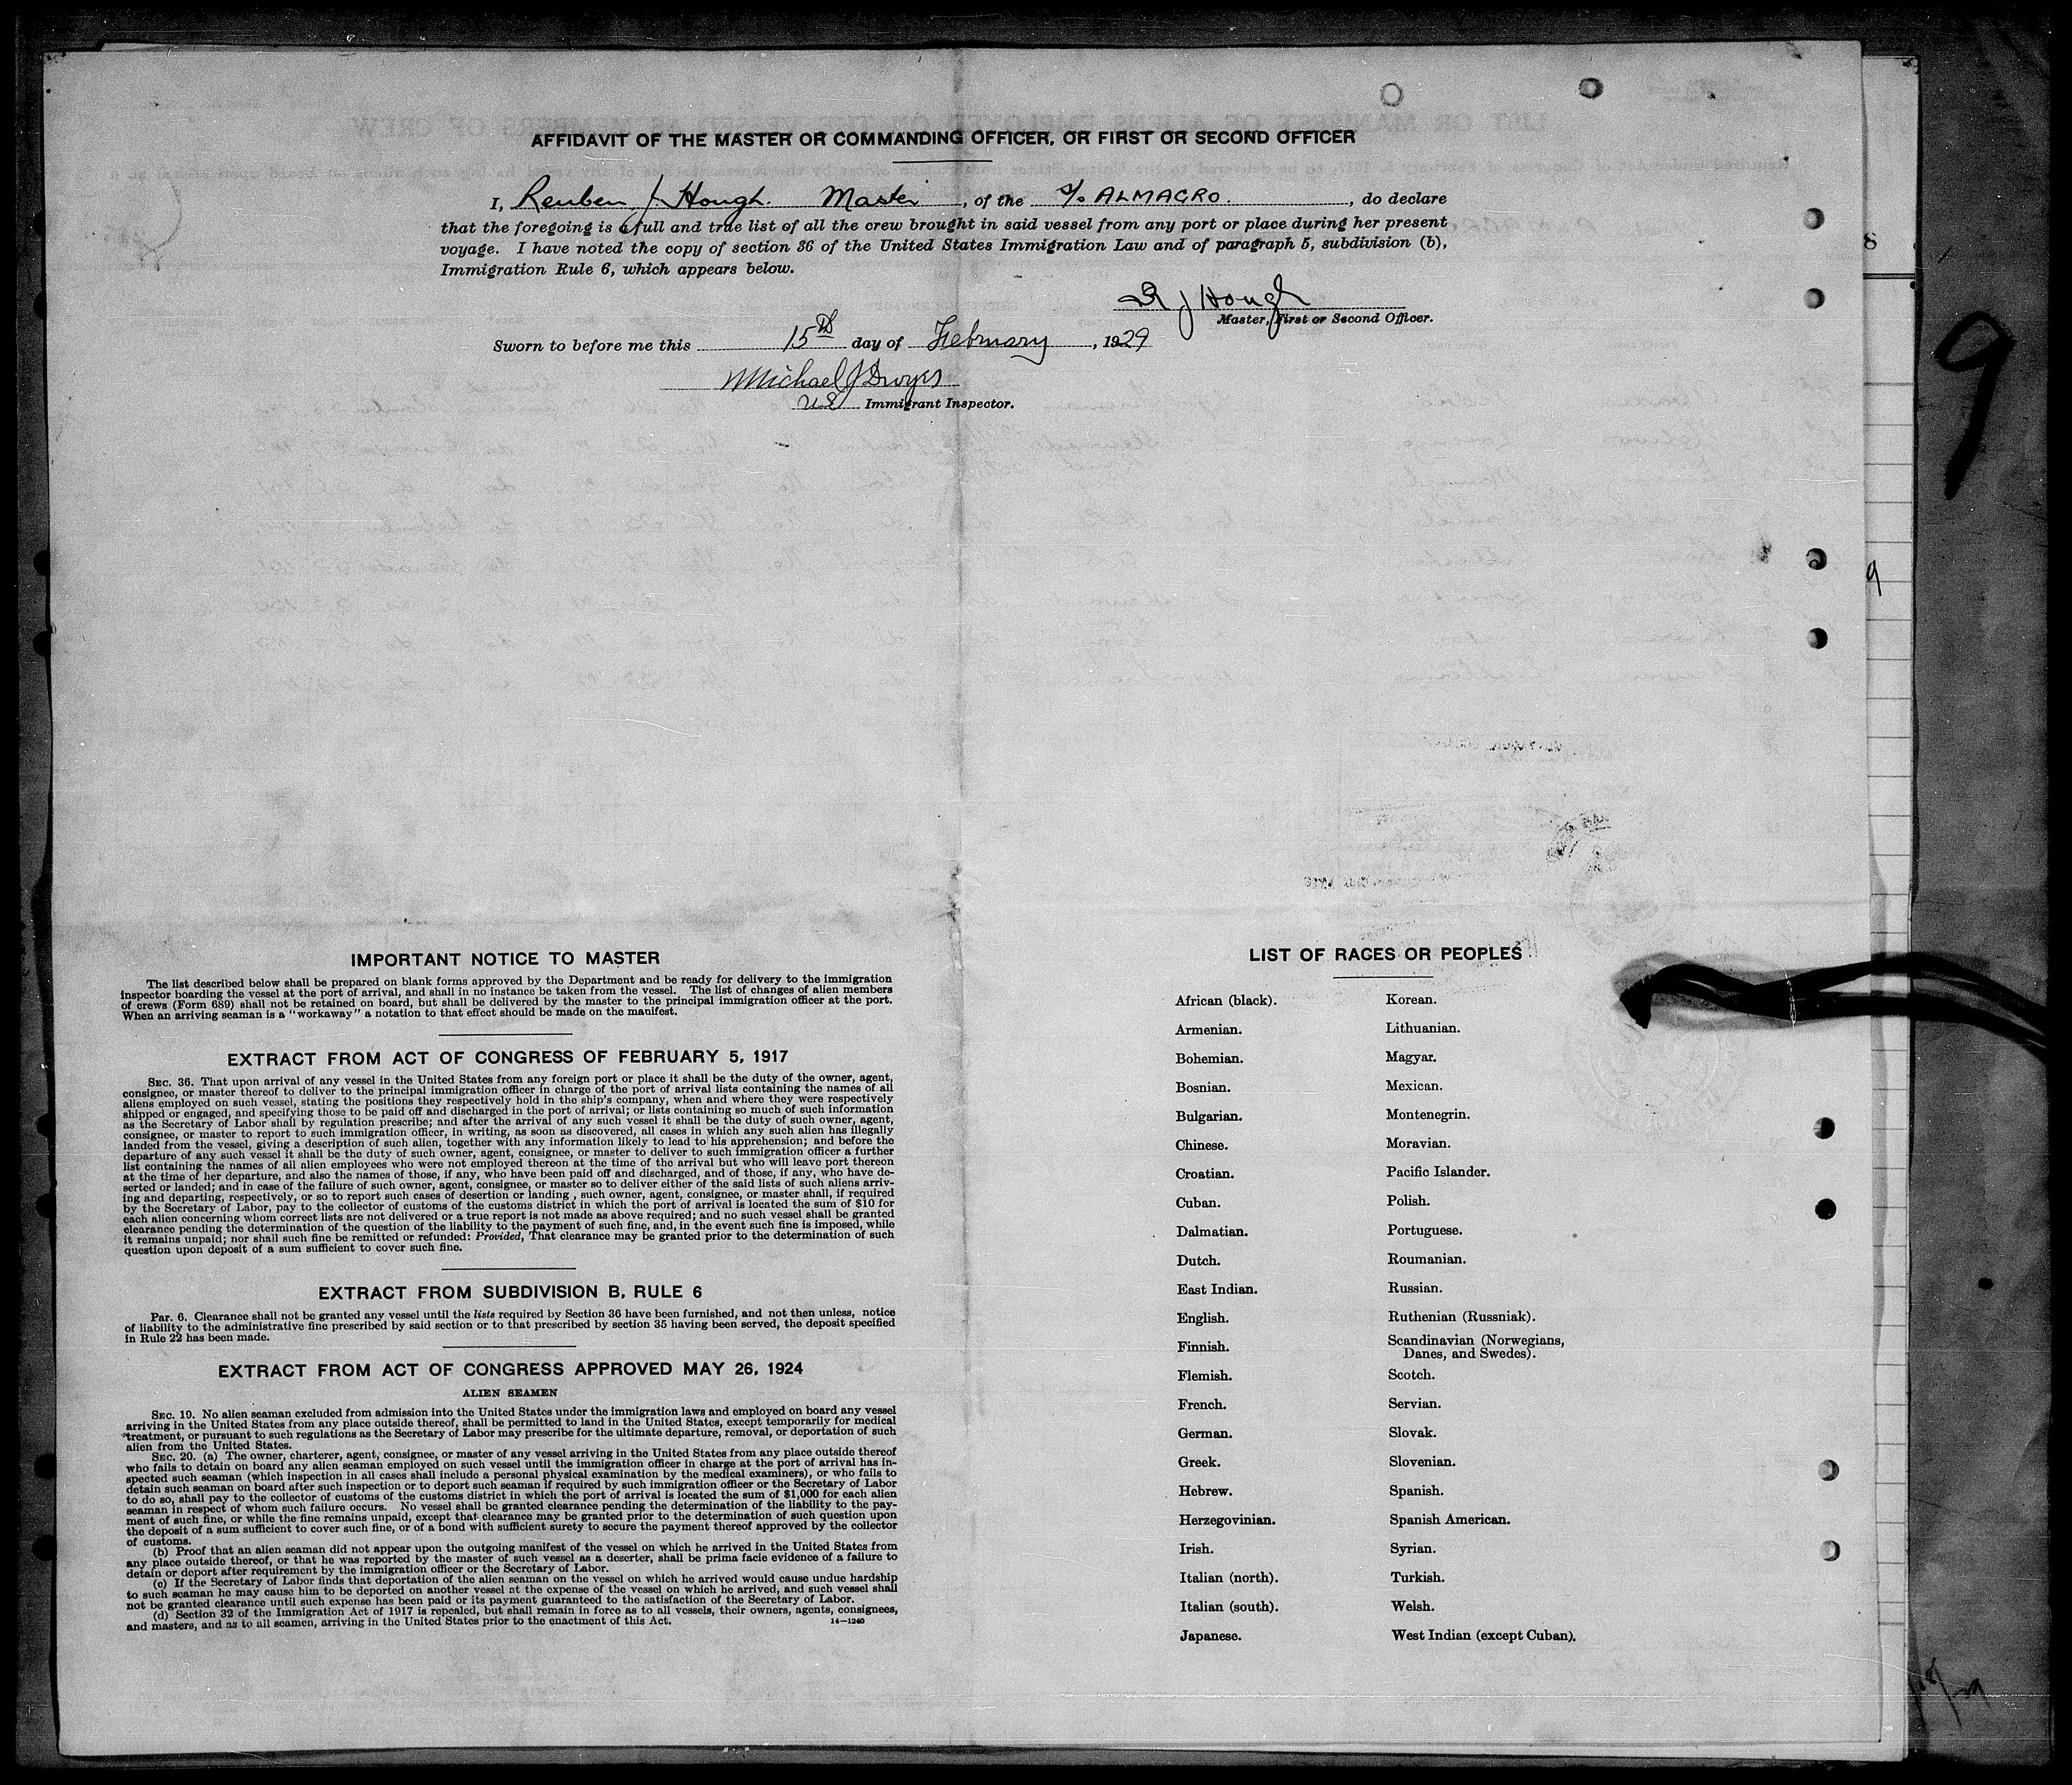 AFFIDAVIT OF THE MASTER OR COMMANDING OFFICER, OR FIRST OR SECOND OFFICER
I, Reuben J Hough. Master, of the S/S ALMAGRO., do declare
that the foregoing is a full and true list of all the crew brought in said vessel from any port or place during her present
voyage. I have noted the copy of section 36 of the United States Immigration Law and of paragraph 5, subdivision (b),
Immigration Rule 6, which appears below.
R J Hough
Master, First or Second Officer.
Sworn to before me this 15th day of February, 1929
Michael J Dwyer
US Immigrant Inspector.
9
8
9
IMPORTANT NOTICE TO MASTER
The list described below shall be prepared on blank forms approved by the Department and be ready for delivery to the immigration
inspector boarding the vessel at the port of arrival, and shall in no instance be taken from the vessel. The list of changes of alien members
of crews (Form 689) shall not be retained on board, but shall be delivered by the master to the principal immigration officer at the port.
When an arriving seaman is a "workaway" a notation to that effect should be made on the manifest.
EXTRACT FROM ACT OF CONGRESS OF FEBRUARY 5, 1917
SEC. 36. That upon arrival of any vessel in the United States from any foreign port or place it shall be the duty of the owner, agent,
consignee, or master thereof to deliver to the principal immigration officer in charge of the port of arrival lists containing the names of all
aliens employed on such vessel, stating the positions they respectively hold in the ship's company, when and where they were respectively
shipped or engaged, and specifying those to be paid off and discharged in the port of arrival; or lists containing so much of such information
as the Secretary of Labor shall by regulation prescribe; and after the arrival of any such vessel it shall be the duty of such owner, agent,
consignee, or master to report to such immigration officer, in writing, as soon as discovered, all cases in which any such alien has illegally
landed from the vessel, giving a description of such alien, together with any information likely to lead to his apprehension; and before the
departure of any such vessel it shall be the duty of such owner, agent, consignee, or master to deliver to such immigration officer a further
list containing the names of all alien employees who were not employed thereon at the time of the arrival but who will leave port thereon
at the time of her departure, and also the names of those, if any, who have been paid off and discharged, and of those, if any, who have de-
serted or landed; and in case of the failure of such owner, agent, consignee, or master so to deliver either of the said lists of such aliens arriv-
ing and departing, respectively, or so to report such cases of desertion or landing , such owner, agent, consignee, or master shall, if required
by the Secretary of Labor, pay to the collector of customs of the customs district in which the port of arrival is located the sum of $10 for
each alien concerning whom correct lists are not delivered or a true report is not made as above required; and no such vessel shall be granted
clearance pending the determination of the question of the liability to the payment of such fine, and, in the event such fine is imposed, while
it remains unpaid; nor shall such fine be remitted or refunded: Provided, That clearance may be granted prior to the determination of such
question upon deposit of a sum sufficient to cover such fine.
EXTRACT FROM SUBDIVISION B, RULE 6
Par. 6. Clearance shall not be granted any vessel until the lists required by Section 36 have been furnished, and not then unless, notice
of liability to the administrative fine prescribed by said section or to that prescribed by section 35 having been served, the deposit specified
in Rule 22 has been made.
EXTRACT FROM ACT OF CONGRESS APPROVED MAY 26, 1924
ALIEN SEAMEN
SEC. 19. No alien seaman excluded from admission into the United States under the immigration laws and employed on board any vessel
arriving in the United States from any place outside thereof, shall be permitted to land in the United States, except temporarily for medical
treatment, or pursuant to such regulations as the Secretary of Labor may prescribe for the ultimate departure, removal, or deportation of such
alien from the United States.
SEC. 20. (a) The owner, charterer, agent, consignee, or master of any vessel arriving in the United States from any place outside thereof
who fails to detain on board any alien seaman employed on such vessel until the immigration officer in charge at the port of arrival has in-
spected such seaman (which inspection in all cases shall include a personal physical examination by the medical examiners), or who fails to
detain such seaman on board after such inspection or to deport such seaman if required by such immigration officer or the Secretary of Labor
to do so, shall pay to the collector of customs of the customs district in which the port of arrival is located the sum of $1,000 for each alien
seaman in respect of whom such failure occurs. No vessel shall be granted clearance pending the determination of the liability to the pay-
ment of such fine, or while the fine remains unpaid, except that clearance may be granted prior to the determination of such question upon
the deposit of a sum sufficient to cover such fine, or of a bond with sufficient surety to secure the payment thereof approved by the collector
of customs.
(b) Proof that an alien seaman did not appear upon the outgoing manifest of the vessel on which he arrived in the United States from
any place outside thereof, or that he was reported by the master of such vessel as a deserter, shall be prima facie evidence of a failure to
detain or deport after requirement by the immigration officer or the Secretary of Labor.
(c) If the Secretary of Labor finds that deportation of the alien seaman on the vessel on which he arrived would cause undue hardship
to such seaman he may cause him to be deported on another vessel at the expense of the vessel on which he arrived, and such vessel shall
not be granted clearance until such expense has been paid or its payment guaranteed to the satisfaction of the Secretary of Labor.
(d) Section 32 of the Immigration Act of 1917 is repealed, but shall remain in force as to all vessels, their owners, agents, consignees,
and masters, and as to all seamen, arriving in the United States prior to the enactment of this Act. 14—1240
LIST OF RACES OR PEOPLES
African (black). Korean.
Armenian. Lithuanian.
Bohemian. Magyar.
Bosnian. Mexican.
Bulgarian. Montenegrin.
Chinese. Moravian.
Croatian. Pacific Islander.
Cuban. Polish.
Dalmatian. Portuguese.
Dutch. Roumanian.
East Indian. Russian.
English. Ruthenian (Russniak).
Finnish. Scandinavian (Norwegians,
Danes, and Swedes).
Flemish. Scotch.
French. Servian.
German. Slovak.
Greek. Slovenian.
Hebrew. Spanish.
Herzegovinian. Spanish American.
Irish. Syrian.
Italian (north). Turkish.
Italian (south). Welsh.
Japanese. West Indian (except Cuban).